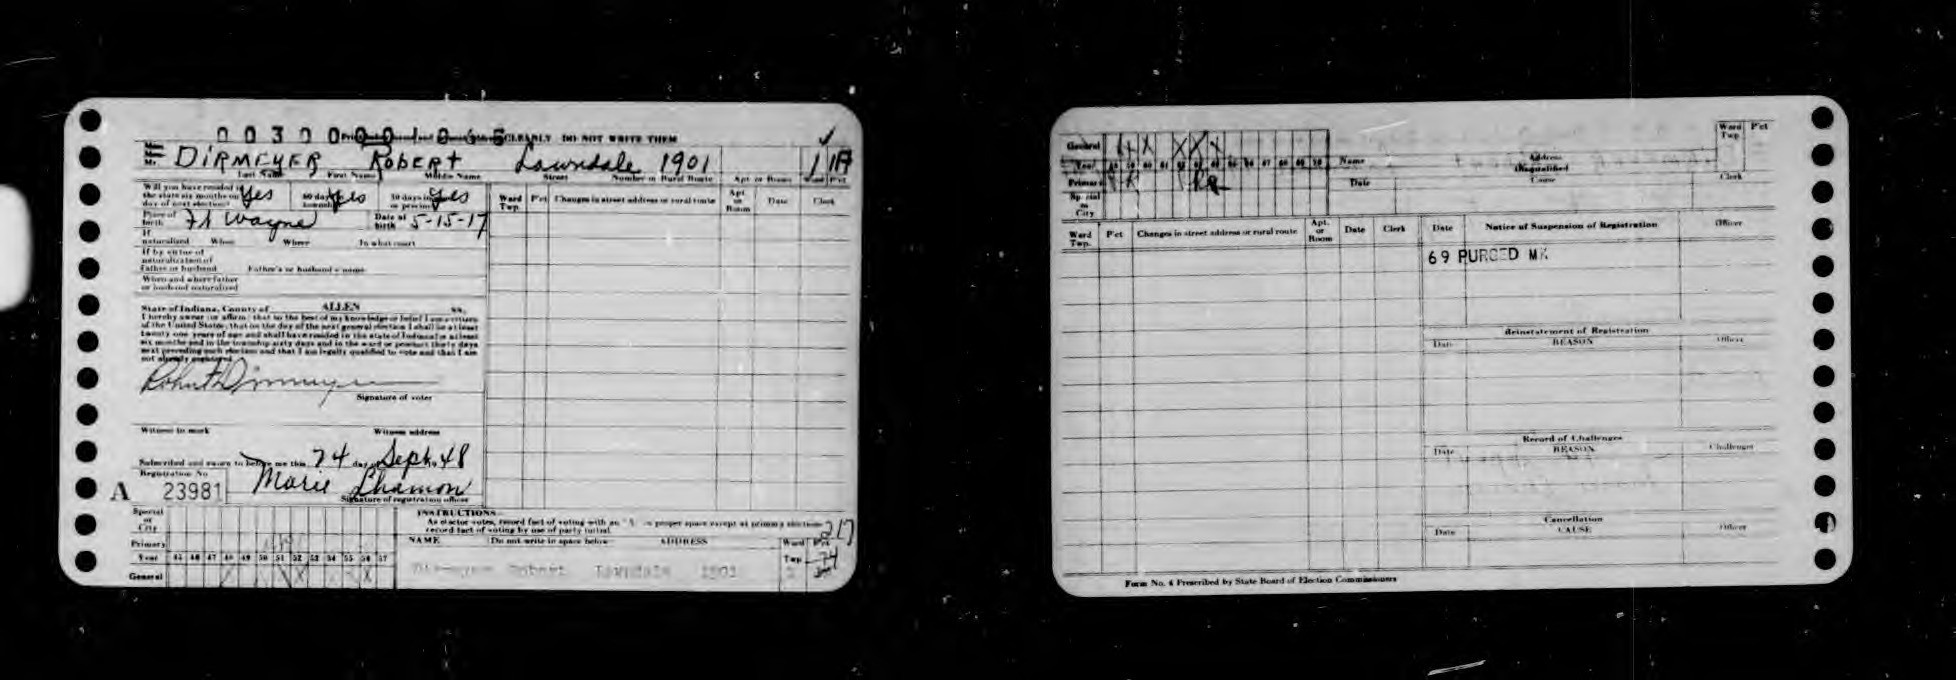 0030000
CLEARLY DO NOT WRITE THEM
DIRMEYER ROBERT Lawndale 1901
Last Name First Name Middle Name Street Number or Rural Route Apt. or Room Ward Pct.
Will you have resided in the state six months on day of next election? Yes 60 days in township Yes 30 days in precinct Yes
Place of birth Ft Wayne Date of birth 5-15-17
If naturalized When Where In what court
If by virtue of naturalization of Father or husband Father's or husband's name
When and where father or husband naturalized
Ward Twp. P'ct Changes in street address or rural route Apt. or Room Date Clerk
State of Indiana, County of ALLEN ss.
I hereby swear (or affirm) that to the best of my knowledge or belief I am a citizen
of the United States; that on the day of the next general election I shall be at least
twenty one years of age and shall have resided in the state of Indiana at least
six months and in the township sixty days and in the ward or precinct thirty days
next preceding such election and that I am legally qualified to vote and that I am
not already registered.
Robert Dirmeyer
Signature of voter
Witness to mark Witness address
Subscribed and sworn to before me this 24 day Sept. 19 48
Registration No.
A 23981
Marie Shamon
Signature of registration officer
INSTRUCTIONS
As elector votes, record fact of voting with an "X" in proper space except at primary elections
record fact of voting by use of party initial.
Special or City
Primary
Year 45 46 47 48 49 50 51 52 53 54 55 56 57
General X X X X
NAME Do not write in space below ADDRESS Ward Twp. P'ct
217
Dirmeyer Robert Lawndale 1901
General X X X X X
Year 58 59 60 61 62 63 64 65 66 67 68 69 70
Primary
Special or City
Name Address Ward Twp. P'ct
Disqualified
Date Cause Clerk
Ward Twp. P'ct Changes in street address or rural route Apt. or Room Date Clerk
Date Notice of Suspension of Registration Officer
69 PURGED MK
Reinstatement of Registration
Date REASON Officer
Record of Challenges
Date REASON Challenger
Cancellation
Date CAUSE Officer
Form No. 4 Prescribed by State Board of Election Commissioners